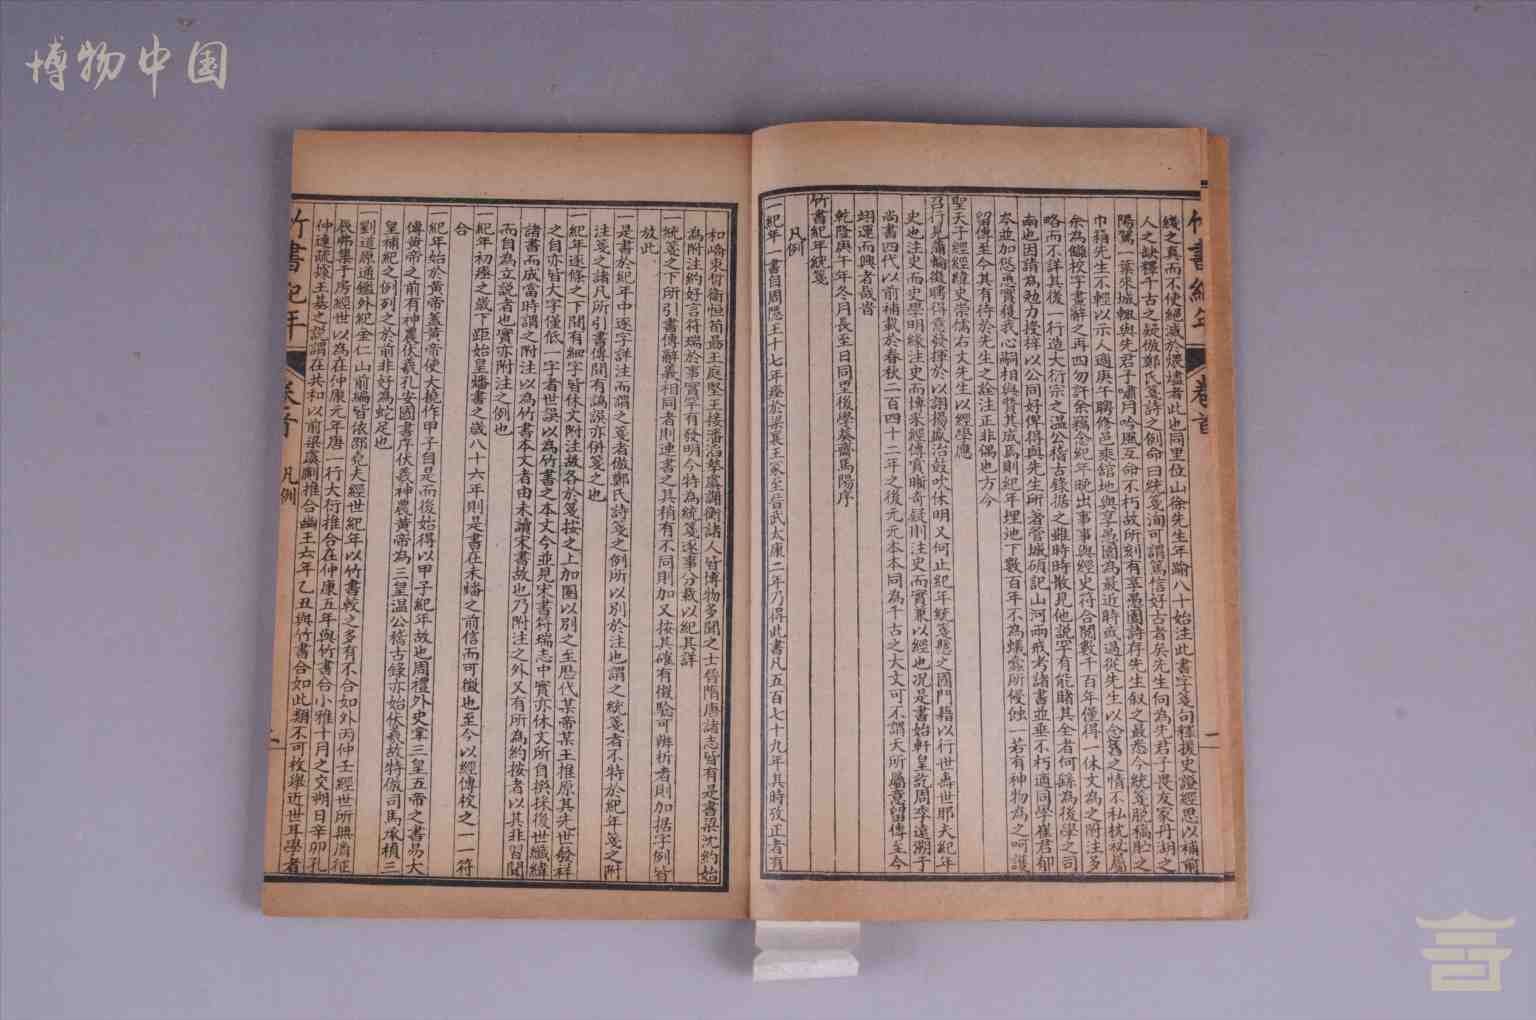 博物中国
竹書紀年
卷首
一
綫之真而不使絕滅於煨燼者此也同里位山徐先生年踰八十始注此書字箋句釋援史證經思以補前
人之缺釋千古之疑倣鄭氏箋詩之例命曰統箋洵可謂篤信好古者矣先生向為先君子畏友家丹湖之
陽驚一葉朱城輙與先君子嘯月吟風互命不朽故所刻有享愚園詩存先生叙之最悉今統箋脫稿貯之
巾箱先生不輕以示人適庚午聘修邑乘舘地與享愚園為最近時或過從先生以念舊之情不私枕秘屬
余為讎校子書辭之再四勿許余竊念紀年晚出事事與經史符合閱數千百年僅得一休文為之附注多
略而不詳其後一行造大衍宗之温公稽古錄据之雖時時散見他說罕有能睹其全者何繇為後學之司
南也因請為勉力捜徃以公同好俾得與先生所著管城碩記山河兩戒考諸書並垂不朽適同學崔君郁
岑並加慫恿實獲我心嗣相與賛其成焉則紀年埋地下數百年不為蟻蠹所侵蝕一若有神物為之呵護
留傳至今其有待於先生之詮注正非偶也方今
聖天子經經緯史崇儒右文先生以經學應
召行見蒲輪徵聘得意發揮於以詡揚盛治鼓吹休明又何止紀年統箋懸之國門藉以行世壽世耶夫紀年
史也注史而史學明緣注史而博采經傳實賅奇疑則注史而實兼以經也况是書始軒皇訖周季遠溯于
尚書四代以前補載於春秋二百四十二年之後元元本本同為千古之大文可不謂天所屬意留傳至今
翊運而興者哉旹
乾隆庚午年冬月長至日同里後學葵齋馬陽序
竹書紀年統箋
凡例
一紀年一書自周隱王十七年瘞於梁襄王冢至晉武太康二年乃得此書凡五百七十九年其時攷正者有
和嶠束晳衛恒荀勗王庭堅王接潘滔摯虞謝衡諸人皆博物多聞之士晉隋唐諸志皆有是書梁沈約始
為附注約好言符瑞於事實罕有發明今特為統箋逐事分載以紀其詳
一統箋之下所引書傳辭義相同者則連書之其稍有不同則加又按其確有徵驗可辨析者則加据字例皆
放此
一是書於紀年中逐字詳注而謂之箋者倣鄭氏詩箋之例所以別於注也謂之統箋者不特於紀年箋之附
注箋之諸凡所引書傳間有譌誤亦併箋之也
一紀年逐條之下間有細字皆休文附注故各於箋按之上加圈以別之至歷代某帝某王推原其先世發祥
之自亦皆大字僅低一字者世誤以為竹書之本文今並見宋書符瑞志中實亦休文所自撰採後世纖緯
諸書而成當時謂之附注以為竹書本文者由未讀宋書故也乃附注之外又有所為約按者以其非習聞
而自為立說者也實亦附注之例也
一紀年初瘞之歲下距始皇燔書之歲八十六年則是書在未燔之前信而可徵也至今以經傳校之一一符
合
一紀年始於黃帝蓋黃帝使大撓作甲子自是而後始得以甲子紀年故也周禮外史掌三皇五帝之書易大
傳黃帝之前有神農伏羲孔安國書序伏羲神農黃帝為三皇温公稽古錄亦始伏羲故特倣司馬承楨三
皇補紀之例列之於前非好為蛇足也
劉道原通鑑外紀金仁山前編皆依邵堯夫經世紀年以竹書較之多有不合如外丙仲壬經世所無胤征
辰弗集于房經世以為在仲康元年唐一行大衍推合在仲康五年與竹書合小雅十月之交朔日辛卯孔
仲達疏據王基之說謂在共和以前梁虞劇推合幽王六年乙丑與竹書合如此類不可枚舉近世耳學者
竹書紀年
卷首
凡例
二